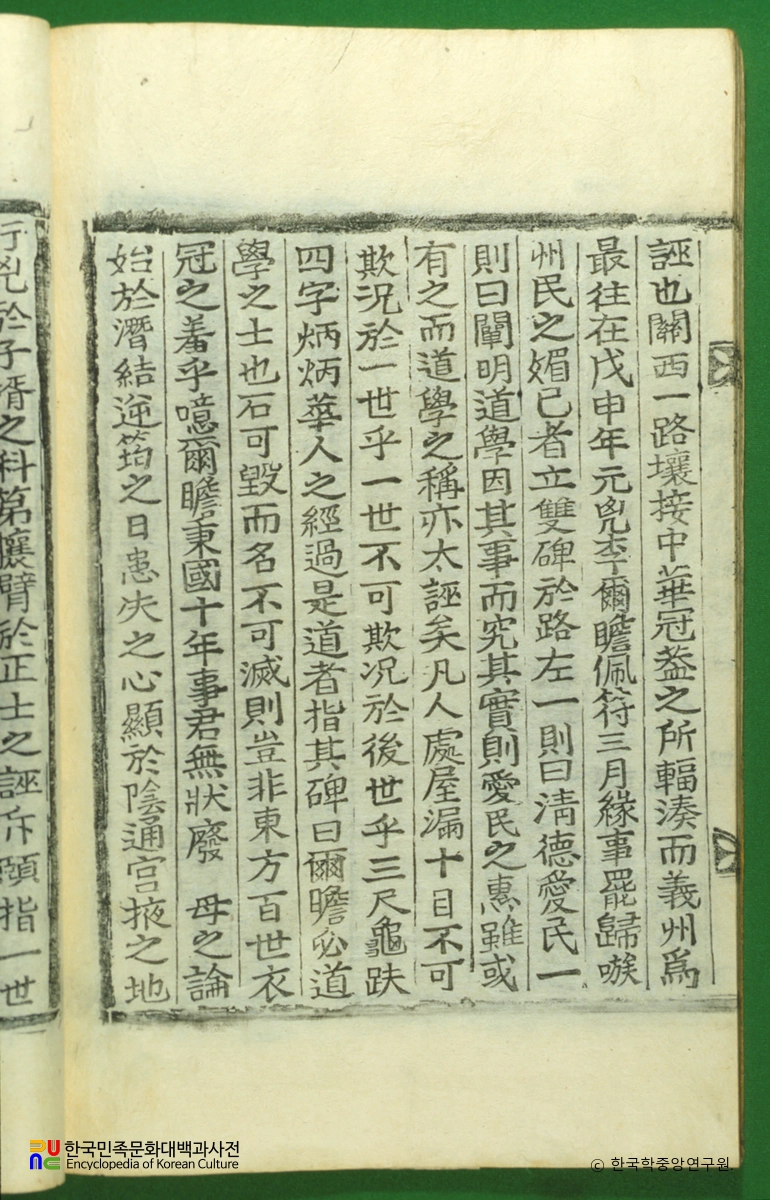 誣也關西一路壤接中華冠盖之所輻湊而義州爲
最往在戊申年元兇李爾瞻佩符三月緣事罷歸嗾
州民之媚己者立雙碑於路左一則曰淸德愛民一
則曰闡明道學因其事而究其實則愛民之惠雖或
有之而道學之稱亦太誣矣凡人處屋漏十目不可
欺况於一世乎一世不可欺况於後世乎三尺龜趺
四字炳炳華人之經過是道者指其碑曰爾瞻必道
學之士也石可毀而名不可滅則豈非東方百世衣
冠之羞乎噫爾瞻秉國十年事君無狀廢 母之論
始於潛結逆筠之日患失之心顯於陰通宮掖之地
行兇於子壻之科第攘臂於正士之誣斥頤指一世
한국민족문화대백과사전
Encyclopedia of Korean Culture
© 한국학중앙연구원